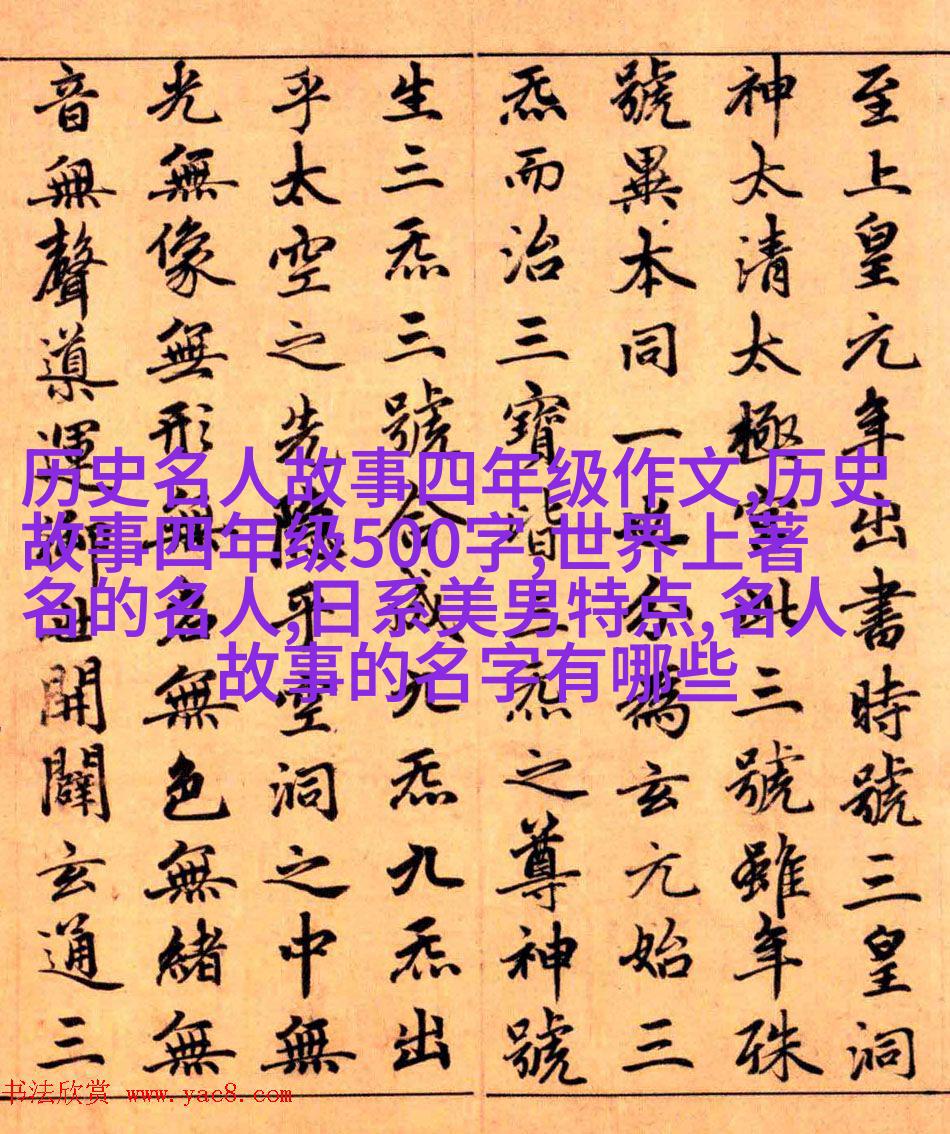 至上皇元年出書時號三皇洞
神太清太極宮此三號雖年殊
號異本同一也分爲玄元始三
炁而治三寶皆三炁之尊神號
生三炁三號合成九炁九炁出
乎太空之先隱乎空洞之中無
光無像無形無名無色無緒無
音無聲導運御世開闢玄通三
历史名人故事四年级作文,历史
故事四年级500字,世界上著
名的名人,日系美男特点,名人
故事的名字有哪些
书法欣赏 www.yac8.com